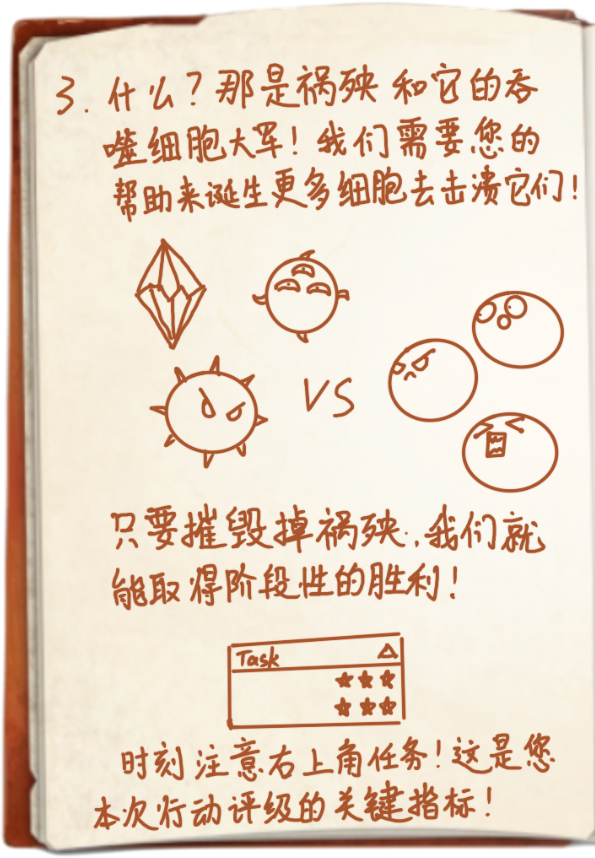 3. 什么？那是祸殃和它的吞
噬细胞大军！我们需要您的
帮助来诞生更多细胞去击溃它们！
VS
只要摧毁掉祸殃，我们就
能取得阶段性的胜利！
Task
时刻注意右上角任务！这是您
本次行动评级的关键指标！